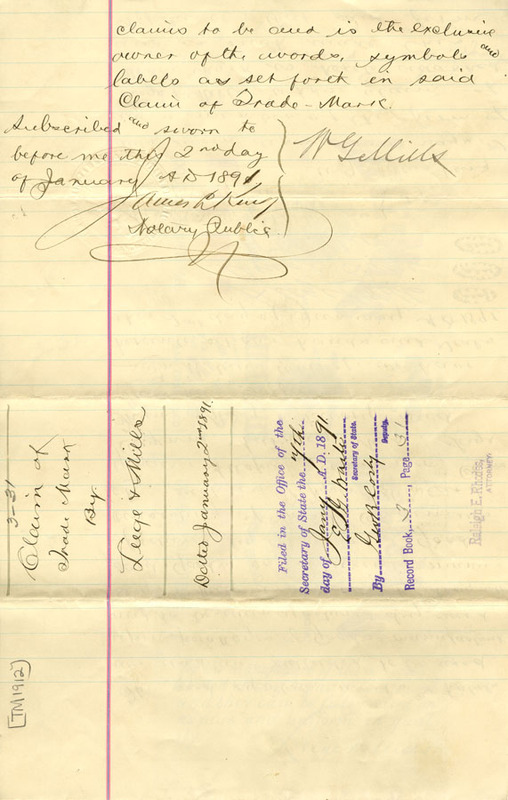 claims to be and is the exclusive
owner of the words, symbols and
labels as set forth in said
Claim of Trade-Mark.
Subscribed and sworn to
before me this 2nd day
of January A D 1891
W G Mills
James L King
Notary Public
3-31
Claim of
Trade Mark
By
Leege & Mills
Dated January 2nd 1891.
Filed in the Office of the
Secretary of State the 7th
day of Jany A. D. 1891
Secretary of State.
By Deputy.
Record Book 3, Page 31
Raleigh E. Rhodes,
ATTORNEY
[TM1912]